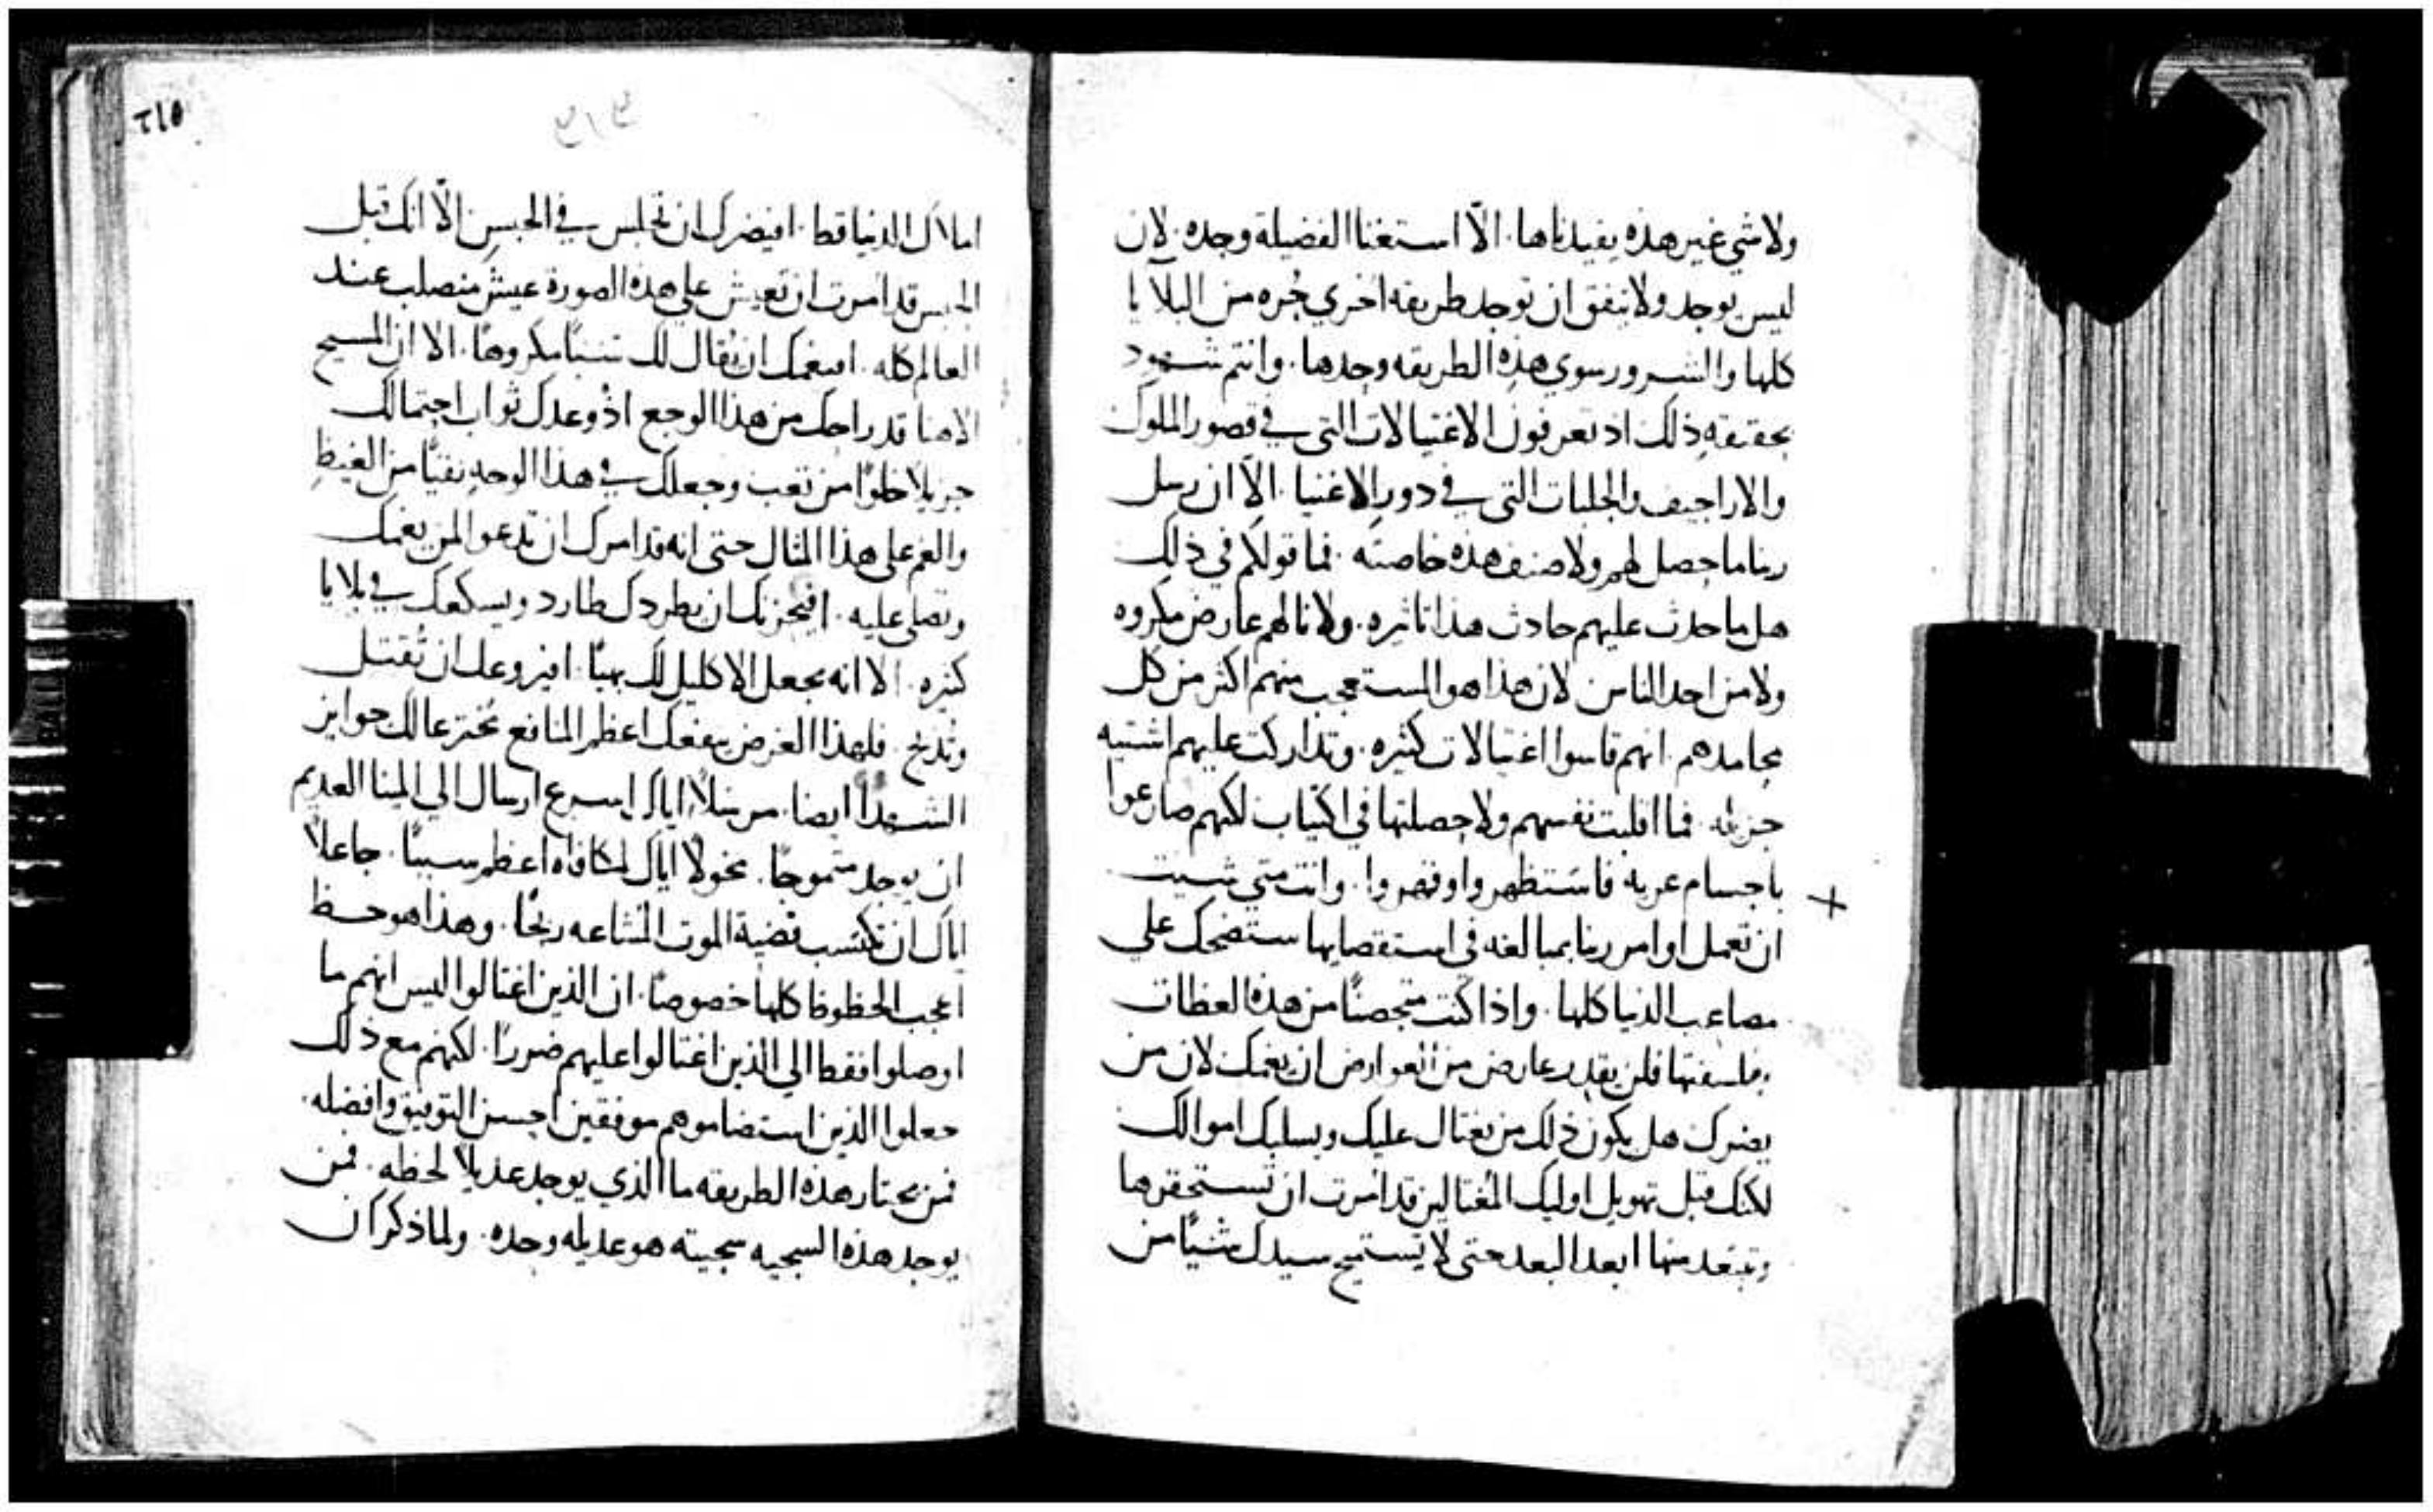 ولا شي غير هذه يفيدناها. الاّ استغنا الفضيلة وحده. لان
ليس يوجد ولا يتفق ان توجد طريقه اخري حُره من البلايا
كلها والشرور سوي هذه الطريقه وحدها. وانتم شهود
بحقيقه ذلك اذ تعرفون الاغتيالات التي في قصور الملوك
والاراجيف والجلبات التي في دور الاغنيا. الاّ ان رسل
ربنا ما حصل لهم ولا صنف هذه خاصته. فما قولكم في ذلك
هل ما حدث عليهم حادث هذا تاثيره. ولا نالهم عارض مكروه
ولا من احد الناس لان هذا هو المستعجب منهم اكثر من كل
محامدهم. انهم قاسوا اغتيالات كثيره. وتداركت عليهم اشتيه
جزيله. فما اقلبت نفسهم ولا حصلتها في اكتياب لكنهم صارعوا
باجسام عريه فاستظهروا وقهروا. وانت متي شيت
ان تعمل اوامر ربنا بمبالغه في استقصايها ستضحك علي
مصاعب الدنيا كلها. واذا كنت متحصنًا من هذه العظات
بفلسفتها فلن يقدر عارض من العوارض ان يغمك لان من
يضرك هل يكون ذلك من يغتال عليك ويسلبك اموالك
لكنك قبل تهويل اوليك المغتالين قد امرت ان تستحقرها
وتبتعد منها ابعد البعد حتي لا تستميح سيدك شيًا من
٢١٥
املاك الدنيا قط. افيضرك ان تجلس في الحبس الاّ انك قبل
الحبس قد امرت ان تعيش علي هذه الصورة عيش منصلب عند
العالم كله. افيغمك ان يقال لك شيًا مكروهًا. الا ان المسيح
الاهنا قد راحك من هذا الوجع اذ وعدك ثواب احتمالك
جزيلاً خلوًا من تعب وجعلك في هذا الوجه نقيًا من الغيظ
والغم علي هذا المثال حتي انه قد امرك ان تدعو المن يغمك
وتصلي عليه. افيحزنك ان يطردك طارد ويسكعك في بلايا
كثيره. الا انه يجعل الاكليل لك بهيًا. افيروعك ان تُقتل
وتذبح. فلهذا الغرض ينفعك اعظم المنافع مخترعا لك جوايز
الشهدا ايضا. مرسلاً اياك اسرع ارسال الي المينا العديم
ان يوجد متموجًا. مخولاً اياك لمكافاه اعظم سببًا. جاعلاً
اياك ان تكتسب قضية الموت المشاعه ربحًا. وهذا هو حظ
اعجب الحظوظ كلها خصوصًا. ان الذين اغتالوا ليس انهم ما
اوصلوا فقط الي الذين اغتالوا عليهم ضررًا. لكنهم مع ذلك
جعلوا الذين استضاموهم موفقين احسن التوفيق وافضله.
فمن يختار هذه الطريقه ما الذي يوجد عديلاً لحظه. فمن
يوجد هذه السجيه سجيته هو عديله وحده. ولما ذكر ان